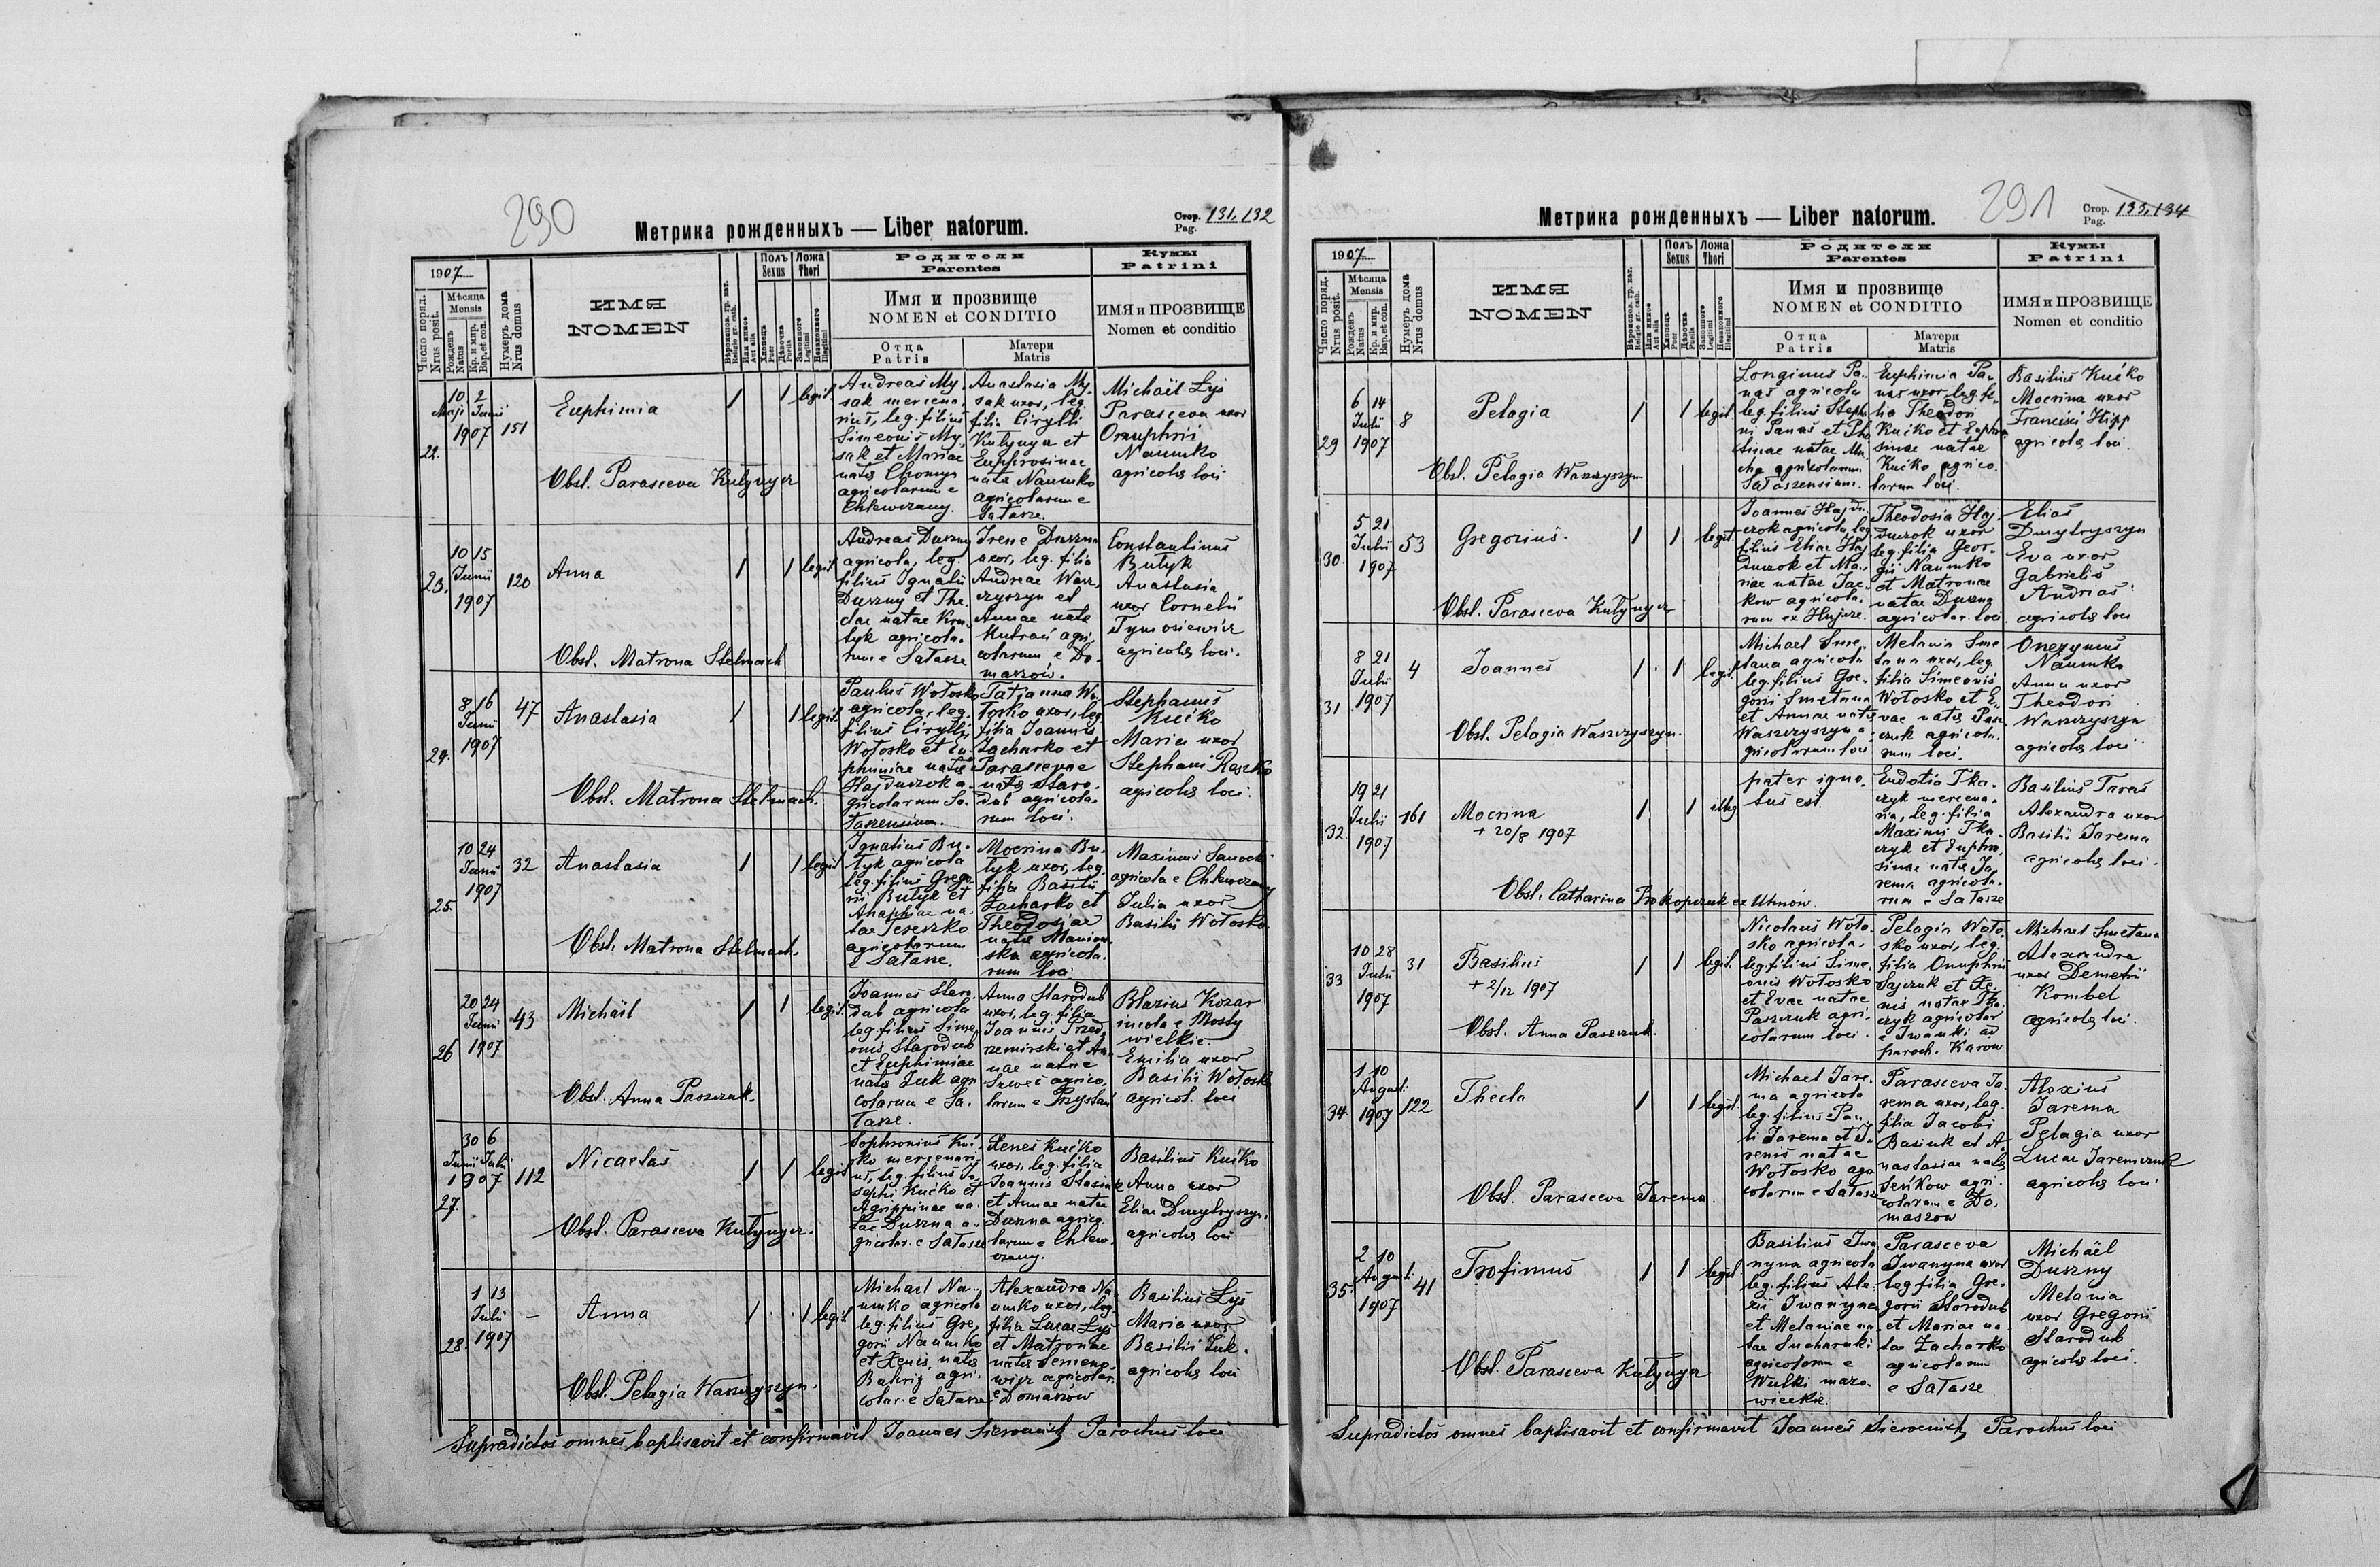 290
Метрика рожденныхъ — Liber natorum.
Стор. 131, 132
Pag.
1907
Число поряд.
Nrus posit.
Мѣсяца
Mensis
Рожденъ
Natus
Кр. и мпр.
Bap. et con.
Нумеръ дома
Nrus domus
ИМЯ
NOMEN
Вѣроиспов. гр. кат.
Religio gr. cath.
Или иное
Aut alia
Полъ
Sexus
Хлопецъ
Puer
Дѣвочка
Puella
Ложа
Thori
Законного
Legitimi
Незаконного
Illegitimi
Родители
Parentes
Имя и прозвище
NOMEN et CONDITIO
Отца
Patris
Матери
Matris
Кумы
Patrini
ИМЯ и ПРОЗВИЩЕ
Nomen et conditio
22.
10 2
Maji Junii
1907
151
Euphimia
1 1 legit.
Andreas My-
sak mercena-
rius, leg. filius
Simeonis My-
sak et Mariae
natae Chomyn
agricolarum e
Chlewczany.
Anastasia My-
sak uxor, leg.
filia Cirylli
Kułynycz et
Euphrosinae
natae Naumko
agricolarum e
Sałasze.
Michaël Łyś
Parasceva uxor
Onuphrii
Naumko
agricolae loci
Obst. Parasceva Kułynycz
23.
10 15
Junii
1907
120
Anna
1 1 legit.
Andreas Duszny
agricola, leg.
filius Ignatii
Duszny et The-
clae natae Kru-
tyk agricola-
rum e Sałasze
Irene Duszna
uxor, leg. filia
Andreae Wasz-
czyszyn et
Annae natae
Kutrań agri-
colarum e Do-
maszów.
Constantinus
Butyk
Anastasia
uxor Cornelii
Tymosiewicz
agricolae loci.
Obst. Matrona Stelmach
24.
8 16
Junii
1907
47
Anastasia
1 1 legit.
Paulus Wołosko
agricola, leg.
filius Cirylli
Wołosko et Eu-
phimiae natae
Hajduczok a-
gricolarum Sa-
łaszensium.
Tatjanna Wo-
łosko uxor, leg.
filia Joannis
Zacharko et
Parascevae
natae Staro-
dub agricola-
rum loci.
Stephanus
Kućko
Maria uxor
Stephani Raszko
agricolae loci.
Obst. Matrona Stelmach.
25.
10 24
Junii
1907
32
Anastasia
1 1 legit.
Ignatius Bu-
tyk agricola
leg. filius Grego-
rii Butyk et
Anaphiae na-
tae Tereszko
agricolarum
e Sałasze.
Mocrina Bu-
tyk uxor, leg.
filia Basilii
Zacharko et
Theodosiae
natae Maniow-
ska agricola-
rum loci
Maximus Sanocki
agricola e Chlewczany
Julia uxor
Basilii Wołosko
Obst. Matrona Stelmach.
26
20 24
Junii
1907
43
Michaël
1 1 legit.
Joannes Staro-
dub agricola
leg. filius Sime-
onis Starodub
et Euphimiae
natae Żuk agri-
colarum e Sa-
łasze.
Anna Starodub
uxor, leg. filia
Joannis Przed-
rzemirski et An-
nae natae
Szweć agrico-
larum e Przystań
Blazius Kozar
incola e Mosty
wielkie.
Emilia uxor
Basilii Wołosko
agricol. loci
Obst. Anna Paszczuk.
27.
30 6
Junii Julii
1907
112
Nicaetas
1 1 legit.
Sophronius Kuć-
ko mercenari-
us, leg. filius Jo-
sephi Kućko et
Agrippinae na-
tae Duszna a-
gricolar. e Sałasze
Xenes Kućko
uxor, leg. filia
Joannis Stasiuk
et Annae natae
Duszna agrico-
larum e Chlew-
czany.
Basilius Kućko
Anna uxor
Eliae Dmytryszyn,
agricolae loci
Obst. Parasceva Kułynycz.
28.
1 13
Julii
1907
–
Anna
1 1 legit.
Michael Na-
umko agricola
leg. filius Gre-
gorii Naumko
et Xenes, natae
Bahrij agri-
colar. e Sałasze
Alexandra Na-
umko uxor, leg.
filia Lucae Łyś
et Matronae
natae Semeno-
wicz agricolar.
e Domaszów
Basilius Łyś
Maria uxor
Basilii Żuk.
agricolae loci
Obst. Pelagia Waszczyszyn.
Supradictos omnes baptisavit et confirmavit Joannes Parochus loci
291
Метрика рожденныхъ — Liber natorum.
Стор. 133, 134
Pag.
1907
Число поряд.
Nrus posit.
Мѣсяца
Mensis
Рожденъ
Natus
Кр. и мпр.
Bap. et con.
Нумеръ дома
Nrus domus
ИМЯ
NOMEN
Вѣроиспов. гр. кат.
Religio gr. cath.
Или иное
Aut alia
Полъ
Sexus
Хлопецъ
Puer
Дѣвочка
Puella
Ложа
Thori
Законного
Legitimi
Незаконного
Illegitimi
Родители
Parentes
Имя и прозвище
NOMEN et CONDITIO
Отца
Patris
Матери
Matris
Кумы
Patrini
ИМЯ и ПРОЗВИЩЕ
Nomen et conditio
29
6 14
Julii
1907
8
Pelagia
1 1 legit.
Longinus Pa-
naś agricola
leg. filius Stepha-
ni Panaś et
natae Mu-
cha agricolarum
Sałaszensium.
Euphimia Pa-
naś uxor, leg. fi-
lia Theodori
Kućko et Euphro-
sinae natae
Kućko agrico-
larum loci.
Basilius Kućko
Mocrina uxor
Francisci Hipp
agricolae loci.
Obst. Pelagia Waszczyszyn
30.
5 21
Julii
1907
53
Gregorius.
1 1 legit.
Joannes Hajdu-
czok agricola, leg.
filius Eliae Haj-
duczok et Ma-
riae natae Jac-
kow agricola-
rum ex Hujcze.
Theodosia Haj-
duczok uxor
leg. filia Geor-
gii Naumko
et Matronae
natae Duszna
agricolar. loci.
Elias
Dmytryszyn
Eva uxor
Gabrielis
Andrias
agricolae loci
Obst. Parasceva Kułynycz
31
8 21
Julii
1907
4
Joannes
1 1 legit.
Michael Sme-
tana agricola
leg. filius Gre-
gorii Smetana
et Annae natae
Waszczyszyn a-
gricolarum loci
Melania Sme-
tana uxor, leg.
filia Simeonis
Wołosko et E-
vae natae Pasz-
czuk agricola-
rum loci.
Onezymus
Naumko
Anna uxor
Theodori
Waszczyszyn
agricolae loci.
Obst. Pelagia Waszczyszyn.
32.
19 21
Julii
1907
161
Mocrina
+ 20/8 1907
1 1 illeg.
pater igno-
tus est.
Eudotia Tka-
czyk mercena-
ria, leg. filia
Maximi Tka-
czyk et Euphro-
sinae natae Ja-
rema agricola-
rum e Sałasze
Basilius Taraś
Alexandra uxor
Basilii Jarema
agricolae loci.
Obst. Catharina Prokopczuk ex Uhnów.
33
10 28
Julii
1907
31
Basilius
+ 2/12 1907
1 1 legit.
Nicolaus Woło-
sko agricola,
leg. filius Sime-
onis Wołosko
et Evae natae
Paszczuk agri-
colarum loci.
Pelagia Woło-
sko uxor, leg.
filia Onuphrii
Sajczuk et Xe-
nis natae Tka-
czyk agricolar.
e Iwanki ad
paroch. Karow
Michael Smetana
Alexandra
uxor Demetrii
Kombel
agricolae loci.
Obst. Anna Paszczuk.
34.
1 10
Augusti
1907
122
Thecla
1 1 legit.
Michael Jare-
ma agricola
leg. filius Pau-
li Jarema et I-
renis natae
Wołosko agri-
colarum e Sałasze
Parasceva Ja-
rema uxor, leg.
filia Jacobi
Basiuk et A-
nastasiae natae
Seńkow agri-
colarum e Do-
maszow
Alexius
Jarema
Pelagia uxor
Lucae Jaremczuk
agricolae loci.
Obst. Parasceva Jarema.
35.
2 10
Augusti
1907
41
Trofimus
1 1 legit.
Basilius Iwa-
nyna agricola
leg. filius Ale-
xii Iwanyna
et Melaniae na-
tae Sucharski
agricolarum e
Wulki mazo-
wieckie.
Parasceva
Iwanyna uxor
leg. filia Gre-
gorii Starodub
et Mariae na-
tae Zacharko
agricolarum
e Sałasze
Michaël
Duszny
Melania
uxor Gregorii
Starodub
agricolae loci.
Obst. Parasceva Kułynycz
Supradictos omnes baptisavit et confirmavit Joannes Parochus loci